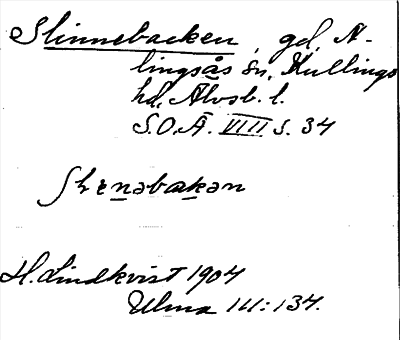 Slinnebacken, gd, A-
lingsås sn, Kullings
hd, Älvsb. l.
S.O.Ä. VIII s. 34
H. Lindkvist 1904
Ulma 111:134.